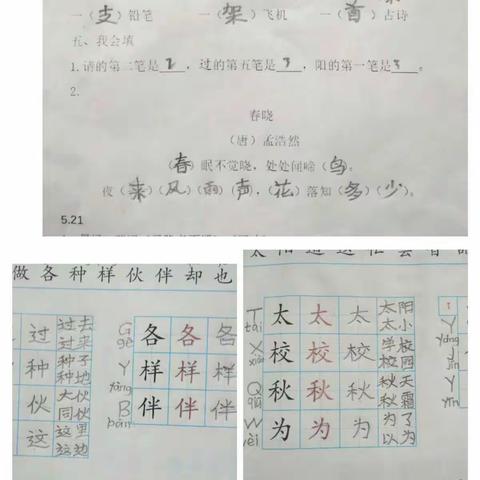 一（支）铅笔 一（架）飞机 一（首）古诗
五、我会填
1.请的第二笔是2，过的第五笔是3，阳的第一笔是3。
2.
春晓
（唐）孟浩然
（春）眠不觉晓，处处闻啼（鸟）。
夜（来）（风）（雨）（声），（花）落知（多）（少）。
5.21
做各种样伙伴却也
过 过去 过来
种 种子 种地
伙 大伙 同伙
这 这里 这边
G gè 各 各 各
Y yàng 样 样 样
B bàn 伴 伴 伴
T tài 太 太 太 太阳 太小
X xiào 校 校 校 学校 校园
Q qiū 秋 秋 秋 秋天 秋霜
W wèi 为 为 为 为了 以为